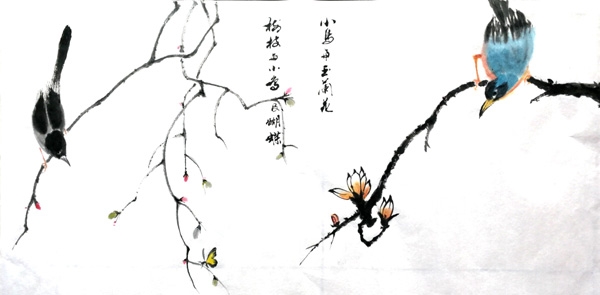 小鸟与玉兰花
树枝与小鸟及蝴蝶